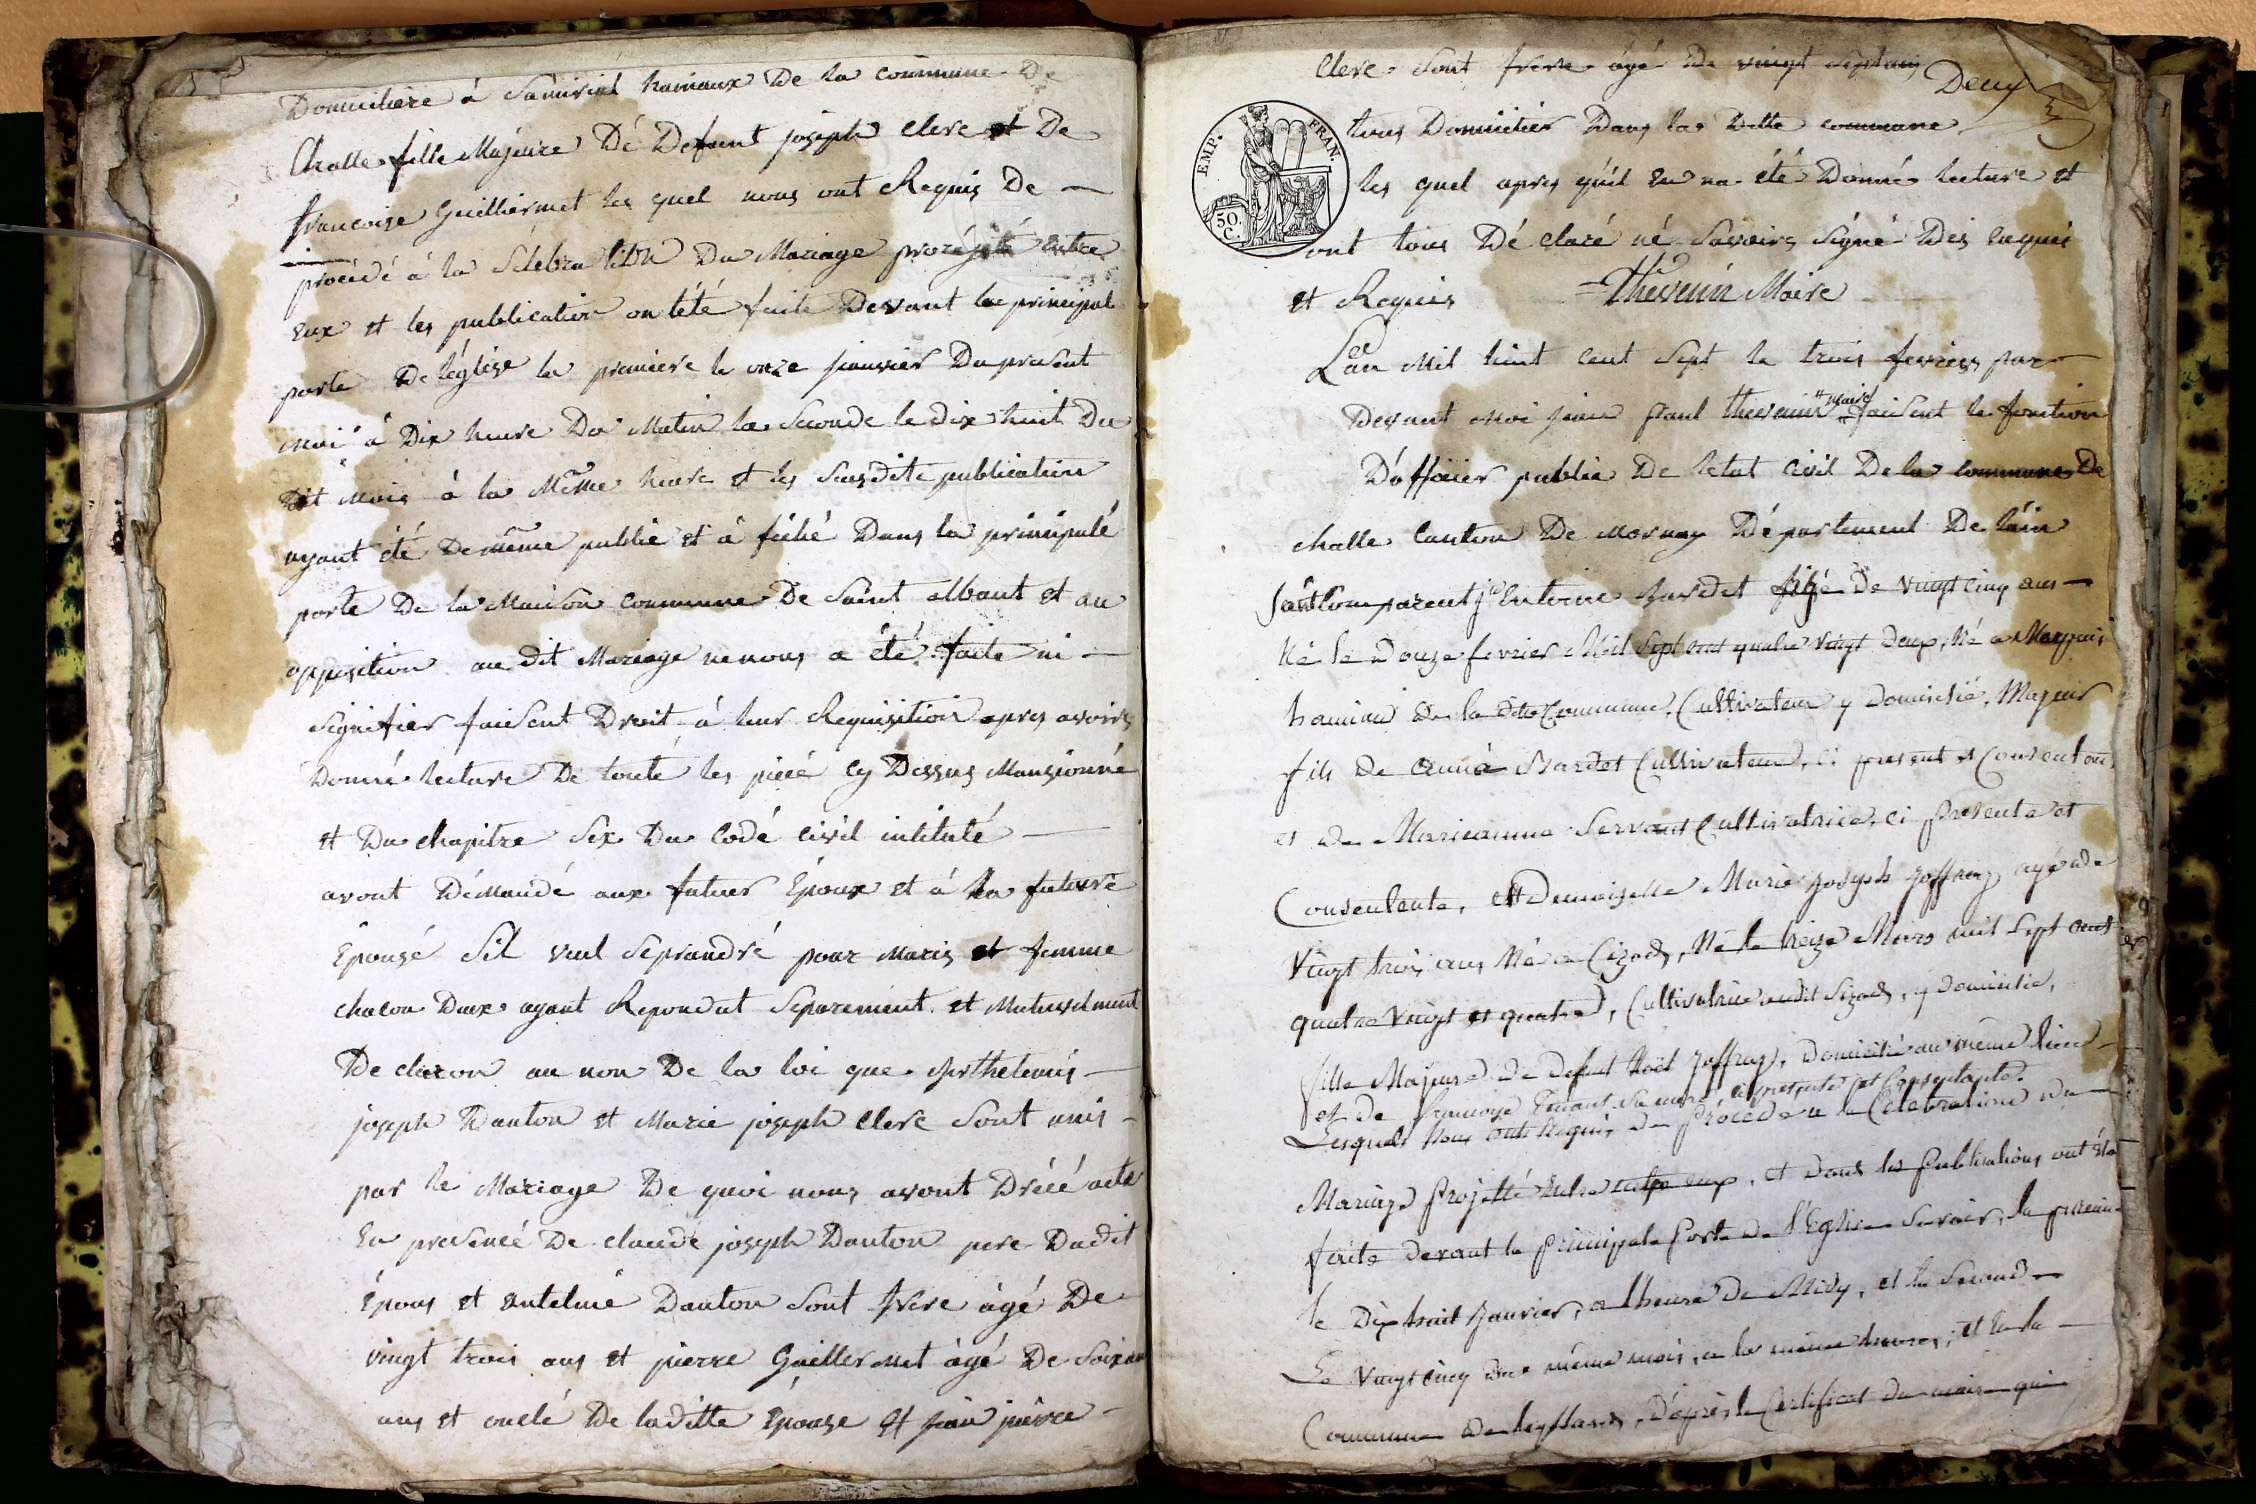 Domiciliere à hamaux De la commune De
Challe fille Majeure Dé Defunt joseph Clerc et De
francoise Guilliermet les quel nous ont Requis De
procédé à la Sélébration Du Mariage projété entre
eux et les publication on tété faite Devant la principal
porte De léglise la premiere le onze janvier Du present
moi à Dix heure Du Matin la Seconde le dix huit Du
dit mois à la Même heure et les Susdite publication
ayant été De même publié et à fiché Dans la principalé
porte De la Maison commune De Saint albant et au
opposition au dit Mariage ne nous a été faite ni
Signifier faisent Droit à leur Requisition apres avoire
Donné lecture De touté les piecé cy Dessus Mansionné
et Du chapitre Six Du Codé civil intitulé
avont Démandé aux futuer Epoux et à la future
Epousé Sil veul Seprandré pour Maris et femme
chacon Deux ayant Repondut Séparément et Mutuelment
De claron au non De la loi que Barthelemis
joseph Danton et Marie joseph Clerc Sont unis
par le Mariage De quoi nous avont Drécé acte
En presencé De claude joseph Danton pere Dudit
Epous et entelme Danton Sont frere àgé De
vingt trois ans et pierre Guillermet àgé De Soixan
ans et onclé De laditte Epouse et jean pierre
Clerc Sont frere àgé De vingt Septans
Deux
EMP. FRAN.
50 C.
tous Domicilier Dans la Ditte commune
les quel apres quil en na été Donné lecture et
ont tous Dé claré né Savoire Signé Des enquis
et Requis Thevenin Maire
Lan Mil huit cent Sept le trois fevrier par
Devant Moi jean paul thevenin maire faisent le fonction
Dofficier public De letat civil De la commune De
challe Canton De Mornay Département De láin
Sont Comparent Entoine Bardet âgé De vingt cinq ans
Né le Douze fevrier Mil Sept cent quatre vingt Deux, Né a
hamau de la dite Commune, Cultivateur y Domicilié, Majeur
fils De Bardet Cultivateur, ci present et Consentant,
et de Marieanne Servant Cultivatrice, ci presente et
Consentente, et Demoiselle Marie joseph joffray agé de
Vingt trois ans Né a Cizod, Né le treize Mars mil Sept cent
quatre Vingt et quatre, Cultivatrice audit Sizod, y domicilié,
fille Majeure de defunt Noël joffray, domicilié au même lieu
et de francoise Sa mere, ci presente et Consentante.
Lesquels Nous ont Requis de Procéder a la Célébration du
Mariage projetté Entre eux, et dont les Publications ont été
faite devant la principale Porte de l'Eglise Savoir, la premiere
le Dix huit Janvier, a lheure De Midy, et la Seconde
Le Vingt cinq du même mois, a la même heure, et En la
Commune De leyssard, D'après le Certificat du maire qui